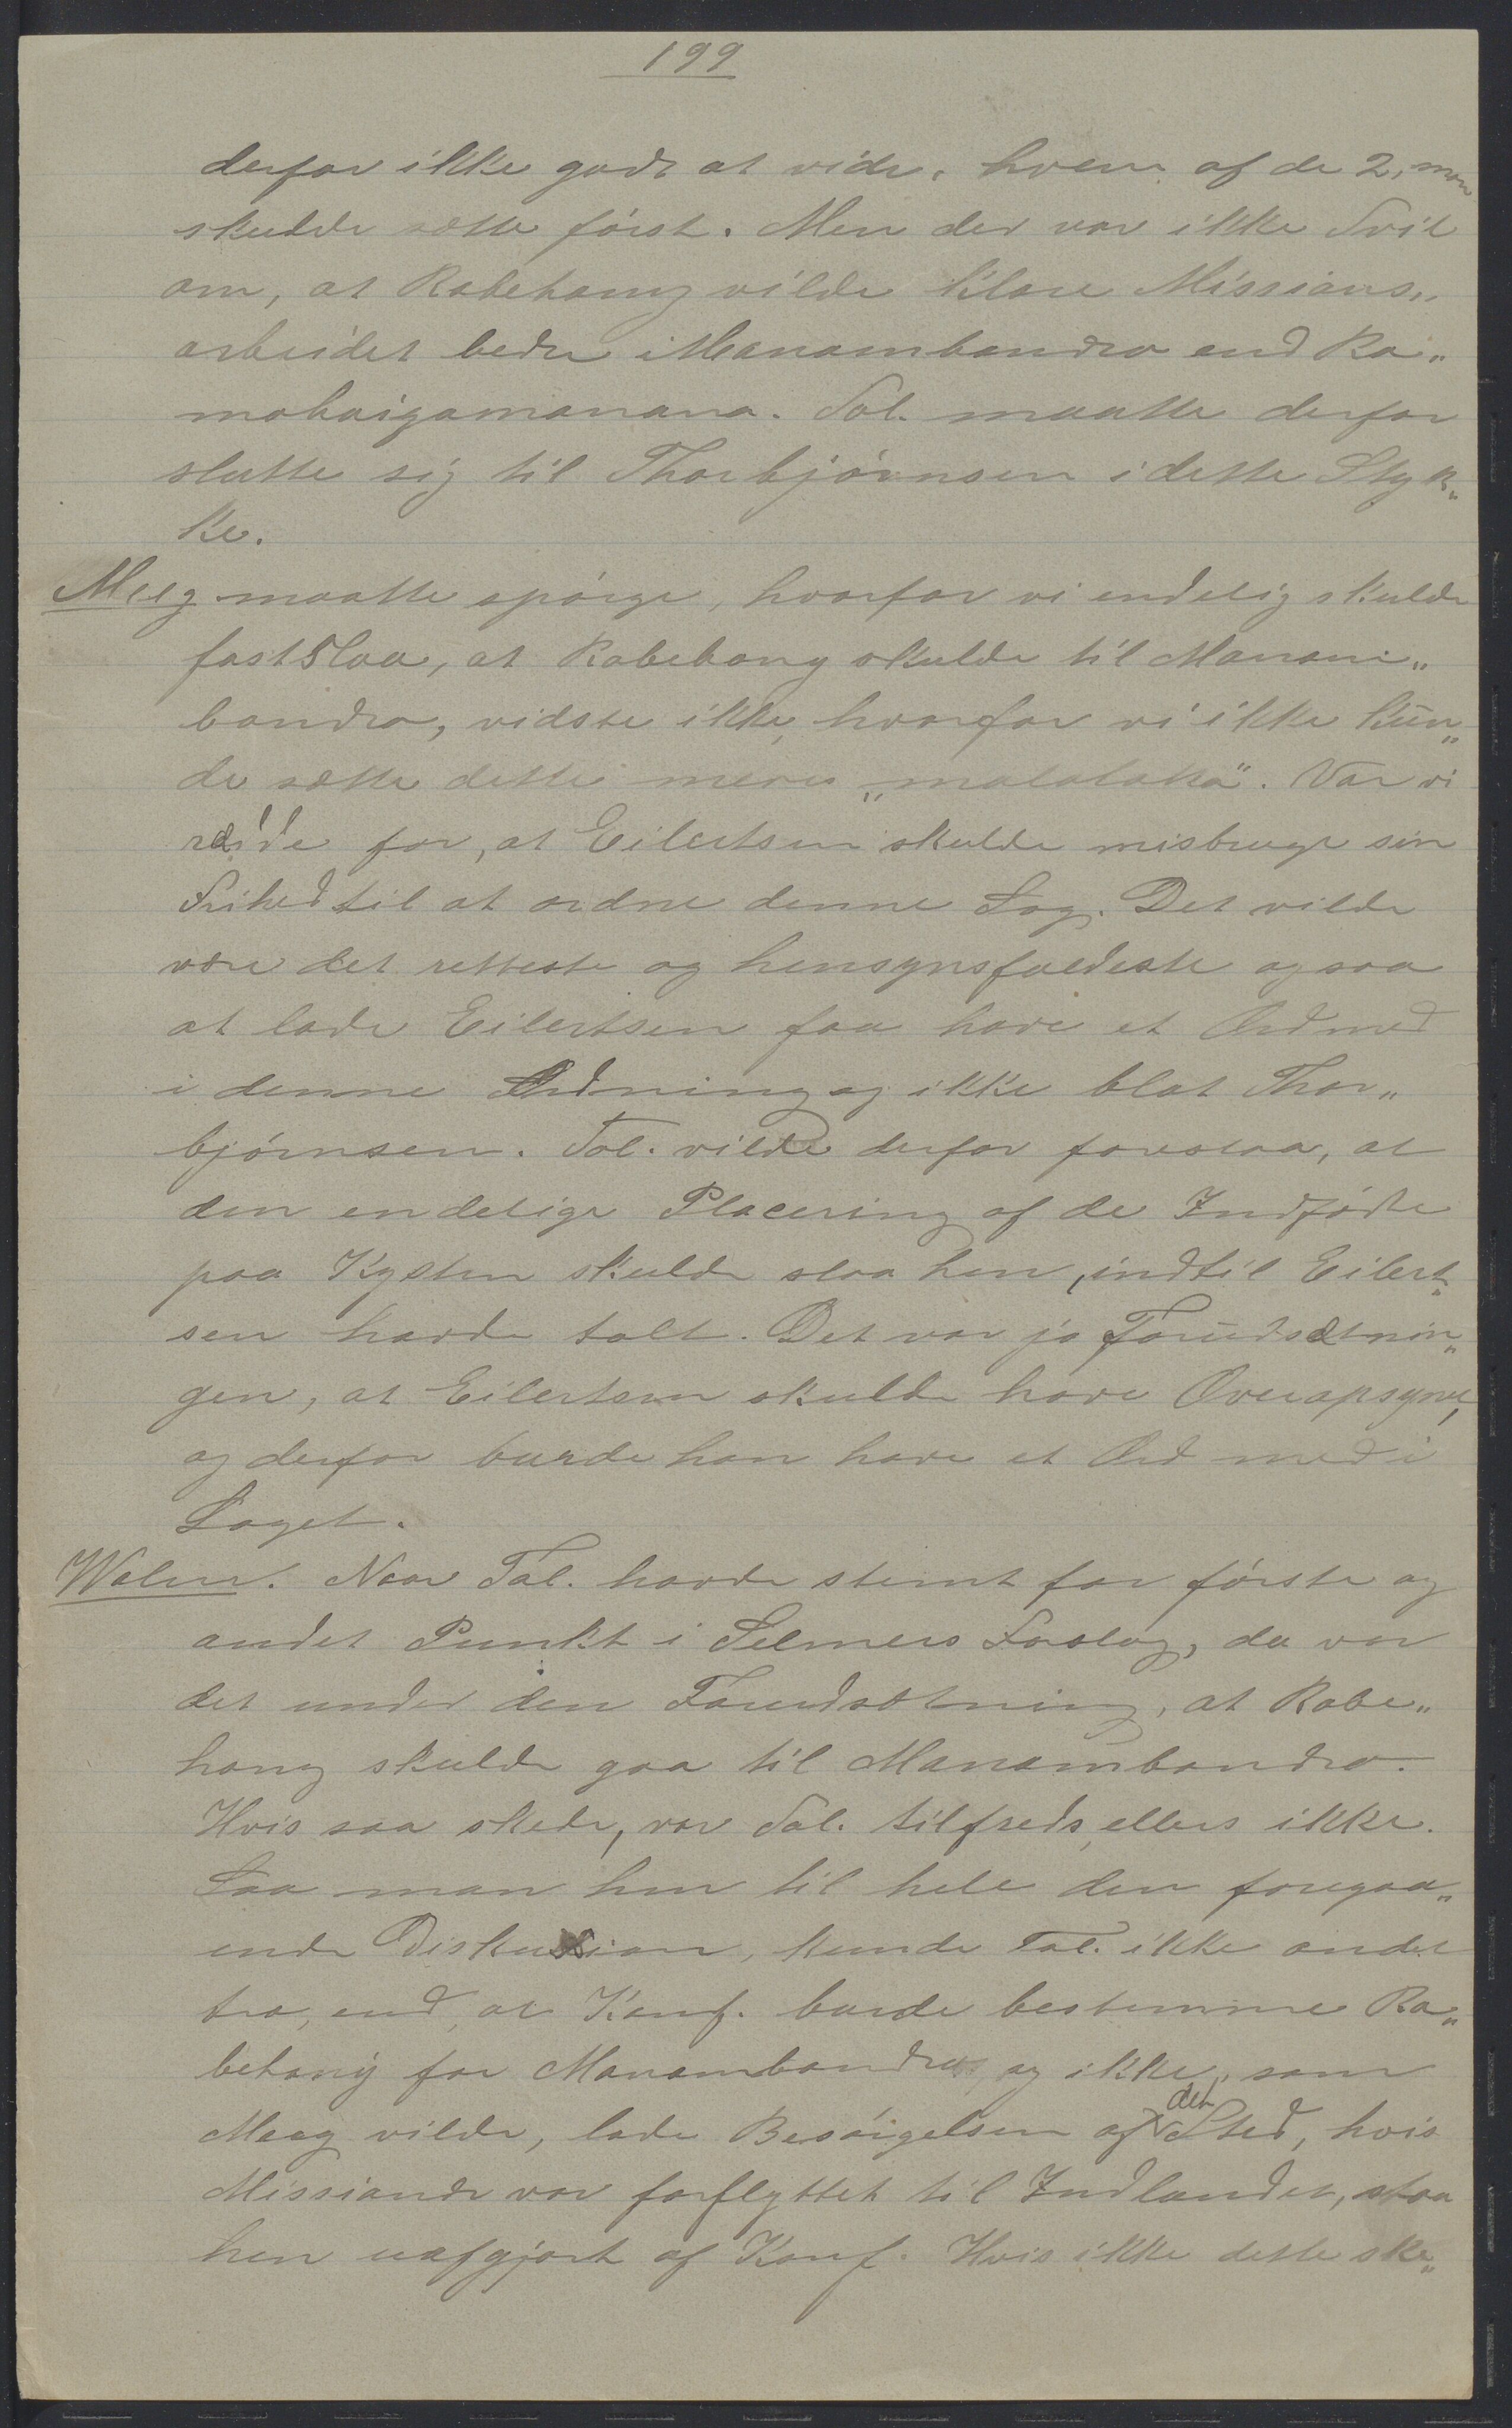 199
derfor ikke godt at vide, hvem af de 2, man
skulde sætte först. Men der var ikke Tvil
om, at Rabehany vilde klare Missions„
arbeidet bedre i Manambondro end Ra„
mahaigamanana. Tal. maatte derfor
slutte sig til Thorbjörnsen i dette Styk„
ke.
Meeg maatte spörge, hvorfor vi endelig skulde
fastslaa, at Rabehany skulde til Manam„
bondro, vidste ikke, hvorfor vi ikke kun„
de sætte dette mere „malalaka". Var vi
rædde for, at Eilertsen skulde misbruge sin
Frihed til at ordne denne Sag. Det vilde
være det retteste og hensynsfuldeste ogsaa
at lade Eilertsen faa have et Ord med
i denne Ordning og ikke blot Thor„
björnsen. Tal. vilde derfor foreslaa, at
den endelige Placering af de Indfödte
paa Kysten skulde staa hen, indtil Eilert„
sen havde talt. Det var jo Forudsætnin„
gen, at Eilertsen skulde have Overopsynet,
og derfor burde han have et Ord med i
Laget.
Walen. Naar Tal. havde stemt for förste og
andet Punkt i Selmers Forslag, da var
det under den Forudsætning, at Rabe„
hany skulde gaa til Manambondro.
Hvis saa skede, var Tal. tilfreds, ellers ikke.
Saa man hen til hele den foregaa„
ende Diskussion, kunde Tal. ikke andet
tro, end, at Konf. burde bestemme Ra„
behany for Manambondro, og ikke, som
Meeg vilde, lade Besörgelsen af det Sted, hvis
Missionær var forflyttet til Indlandet, staa
hen uafgjort af Konf. Hvis ikke dette ske„